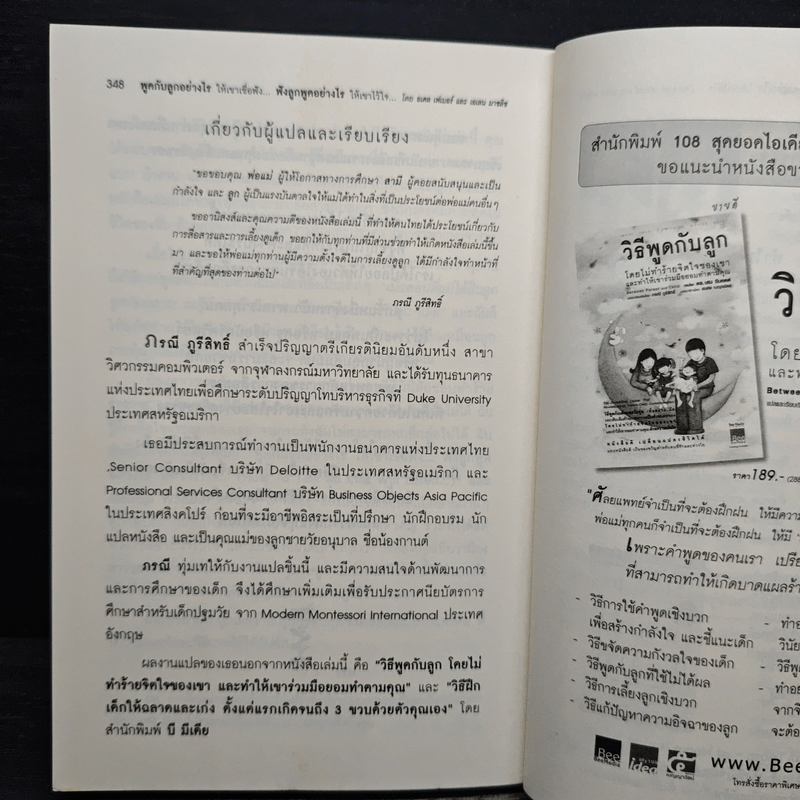 348 พูดกับลูกอย่างไร ให้เขาเชื่อฟัง... ฟังลูกพูดอย่างไร ให้เขาไว้ใจ... โดย อเดล เฟเบอร์ และ เอเลน มาซลิช
เกี่ยวกับผู้แปลและเรียบเรียง
"ขอขอบคุณ พ่อแม่ ผู้ให้โอกาสทางการศึกษา สามี ผู้คอยสนับสนุนและเป็น
กำลังใจ และ ลูก ผู้เป็นแรงบันดาลใจให้แม่ได้ทำในสิ่งที่เป็นประโยชน์ต่อพ่อแม่คนอื่นๆ
ขออานิสงส์และคุณความดีของหนังสือเล่มนี้ ที่ทำให้คนไทยได้ประโยชน์เกี่ยวกับ
การสื่อสารและการเลี้ยงดูเด็ก ขอยกให้กับทุกท่านที่มีส่วนช่วยทำให้เกิดหนังสือเล่มนี้ขึ้น
มา และขอให้พ่อแม่ทุกท่านผู้มีความตั้งใจดีในการเลี้ยงดูลูก ได้มีกำลังใจทำหน้าที่
ที่สำคัญที่สุดของท่านต่อไป"
ภรณี ภูรีสิทธิ์
ภรณี ภูรีสิทธิ์ สำเร็จปริญญาตรีเกียรตินิยมอันดับหนึ่ง สาขา
วิศวกรรมคอมพิวเตอร์ จากจุฬาลงกรณ์มหาวิทยาลัย และได้รับทุนธนาคาร
แห่งประเทศไทยเพื่อศึกษาระดับปริญญาโทบริหารธุรกิจที่ Duke University
ประเทศสหรัฐอเมริกา
เธอมีประสบการณ์ทำงานเป็นพนักงานธนาคารแห่งประเทศไทย
.Senior Consultant บริษัท Deloitte ในประเทศสหรัฐอเมริกา และ
Professional Services Consultant บริษัท Business Objects Asia Pacific
ในประเทศสิงคโปร์ ก่อนที่จะมีอาชีพอิสระเป็นที่ปรึกษา นักฝึกอบรม นัก
แปลหนังสือ และเป็นคุณแม่ของลูกชายวัยอนุบาล ชื่อน้องกานต์
ภรณี ทุ่มเทให้กับงานแปลชิ้นนี้ และมีความสนใจด้านพัฒนาการ
และการศึกษาของเด็ก จึงได้ศึกษาเพิ่มเติมเพื่อรับประกาศนียบัตรการ
ศึกษาสำหรับเด็กปฐมวัย จาก Modern Montessori International ประเทศ
อังกฤษ
ผลงานแปลของเธอนอกจากหนังสือเล่มนี้ คือ "วิธีพูดกับลูก โดยไม่
ทำร้ายจิตใจของเขา และทำให้เขาร่วมมือยอมทำตามคุณ" และ "วิธีฝึก
เด็กให้ฉลาดและเก่ง ตั้งแต่แรกเกิดจนถึง 3 ขวบด้วยตัวคุณเอง" โดย
สำนักพิมพ์ บี มีเดีย
สำนักพิมพ์ 108 สุดยอดไอเดีย
ขอแนะนำหนังสือขา
ขายดี
วิธีพูดกับลูก
โดยไม่ทำร้ายจิตใจของเขา
และทำให้เขาร่วมมือยอมทำตามคุณ
วิ
โดย
และท
Betwee
ราคา 189.- (288
"ศัลยแพทย์จำเป็นที่จะต้องฝึกฝน ให้มีความ
พ่อแม่ทุกคนก็จำเป็นที่จะต้องฝึกฝน ให้มี
เพราะคำพูดของคนเรา เปรีย
ที่สามารถทำให้เกิดบาดแผลร้า
- วิธีการใช้คำพูดเชิงบวก
เพื่อสร้างกำลังใจ และชี้แนะเด็ก
- วิธีขจัดความกังวลใจของเด็ก
- วิธีพูดกับลูกที่ใช้ไม่ได้ผล
- วิธีการเลี้ยงลูกเชิงบวก
- วิธีแก้ปัญหาความอิจฉาของลูก
- ทำอ
วินัย
- วิธีพู
- ทำอย
จากจิ
จะต้อ
Bee
BeeMedia
idea
www.Bee
โทรสั่งซื้อราคาพิเศษ